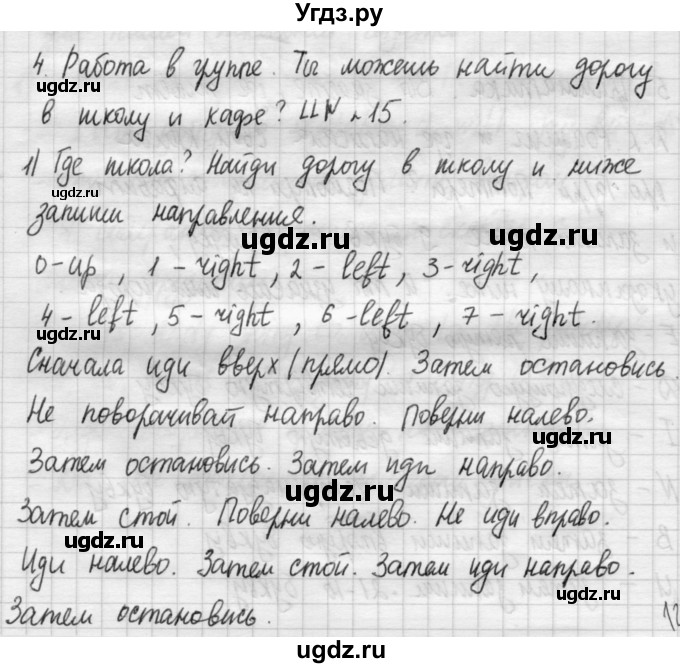 Угдз.ру
4. Работа в группе. Ты можешь найти дорогу
в школу и кафе? ЦN 15.
1) Где школа? Найди дорогу в школу и ниже
запиши направления.
0-up, 1-right, 2-left, 3-right,
4-left, 5-right, 6-left, 7-right.
Сначала иди вверх (прямо). Затем остановись.
Не поворачивай направо. Поверни налево.
Затем остановись. Затем иди направо.
Затем стой. Поверни налево. Не иди вправо.
Иди налево. Затем стой. Затем иди направо.
Затем остановись.
ugdz.ru
ugdz.ru
ugdz.ru
ugdz.ru
ugdz.ru
ugdz.ru
ugdz.ru
ugdz.ru
ugdz.ru
ugdz.ru
ugdz.ru